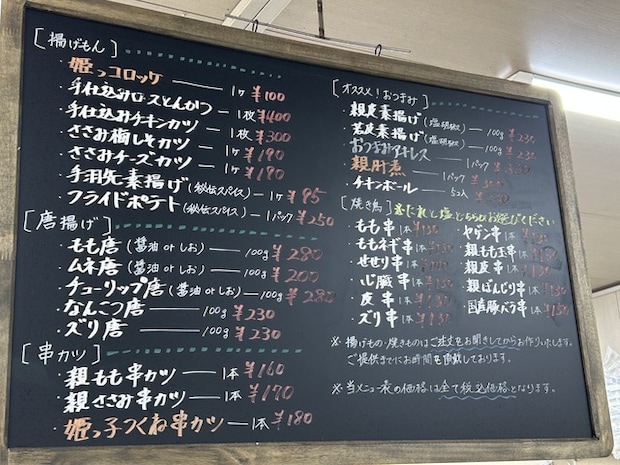 [揚げもん]
・姫っコロッケ ― 1ヶ ¥100
・手仕込みロースとんかつ ― 1枚 ¥400
・手仕込みチキンカツ ― 1枚 ¥300
・ささみ梅しそカツ ― 1ヶ ¥190
・ささみチーズカツ ― 1ヶ ¥190
・手羽先素揚げ(秘伝スパイス) ― 1ヶ ¥95
・フライドポテト(秘伝スパイス) ― 1パック ¥250
[唐揚げ]
・もも唐(醤油 or しお) ― 100g ¥280
・ムネ唐(醤油 or しお) ― 100g ¥200
・チューリップ唐(醤油 or しお) ― 100g ¥280
・なんこつ唐 ― 100g ¥230
・ズリ唐 ― 100g ¥230
[串カツ]
・親もも串カツ ― 1本 ¥160
・親ささみ串カツ ― 1本 ¥170
・姫っ子つくね串カツ ― 1本 ¥180
[オススメ!おつまみ]
・親皮素揚げ(塩胡椒) ― 100g ¥230
・若皮素揚げ(塩胡椒) ― 100g ¥230
・おつまみアキレス ― 1パック
・親肝煮 ― 1パック
・チキンボール ― 5コ入
[焼き鳥] 甘だれと塩どちらかお選びください
・もも串 1本 ¥130
・ももネギ串 1本 ¥130
・せせり串 1本
・心臓串 1本 ¥130
・皮串 1本 ¥130
・ズリ串 1本 ¥130
・ヤゲン串 1本
・親もも玉串 1本
・親皮串 1本
・親ぼんじり串 1本
・国産豚バラ串 1本
※揚げもの・焼きものはご注文をお聞きしてからお作りいたします。
ご提供までにお時間を頂戴しております。
※当メニュー表の価格は全て税込価格となります。